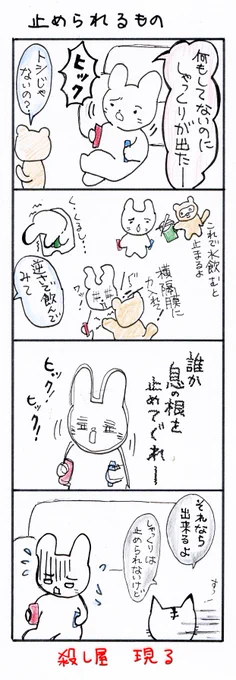 止められるもの
何もしてないのに
しゃっくりが出たー
ヒック
トシじゃ
ないの？
これで水飲むと
止まるよ
く、くるし…
逆さで飲んで
みて
横隔膜に
カツ！
誰か
息の根を
止めでぐれー
ヒック！
ヒック！
それなら
出来るよ
しゃくりは
止められないけど
すっ
殺し屋　現る